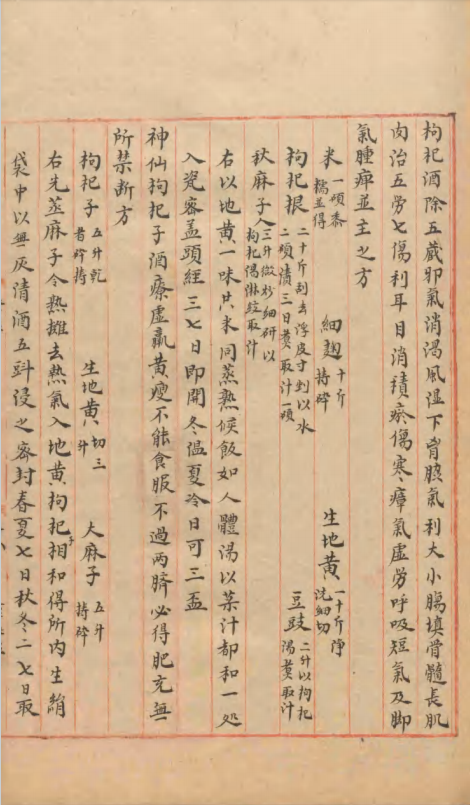 枸杞酒除五藏邪氣消渴風湿下胷脇氣利大小膓填骨髓長肌
肉治五勞七傷利耳目消積瘀傷寒瘴氣虛勞呼吸短氣及脚
氣腫痺並主之方
米一碩黍糯並得 細麹十斤持碎 生地黄一十斤淨洗細切
枸杞根二十斤刮去浮皮寸剉以水二碩漬三日煑取汁一碩 豆豉二升以枸杞湯煑取汁
秋麻子人三升微炒細研以枸杞湯淋絞取汁
右以地黄一味共米同蒸熟候飯如人體湯以藥汁都和一处
入瓷密盖頭經三七日即開冬温夏冷日可三盃
神仙枸杞子酒療虛羸黄瘦不能食服不過两臍必得肥充無
所禁断方
枸杞子五升乾者持 生地黄切三升 大麻子五升持碎
右先蒸麻子令熟攤去熱氣入地黄枸杞子相和得所内生絹
袋中以無灰清酒五㪷浸之密封春夏七日秋冬二七日取